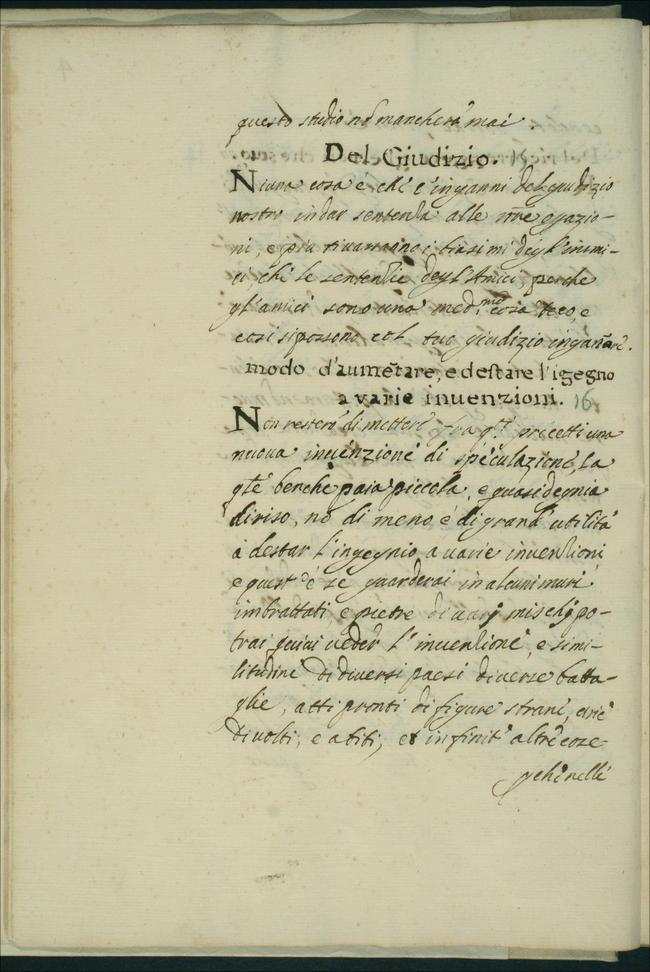 questo studio nõ mancherà mai.
Del Giudizio.
Niuna cosa è chè c'inganni del giudizio
nostro in dar sentenza alle nre opazio-
ni, e più ti varragno i biasimi degl'inimi-
ci chè le sentenzie degl'Amici, perche
gl'amici sono una med.ma cosa teco, e
cosi si possono col tuo giudizio ingañare.
modo d'aumẽtare, e destare l'igegno
a varie inuenzioni. 16
Non resterò di mettere fra qti precetti una
nuoua inuenzione di speculazione, la
qle benche paia piccola, e quasi degnia
di riso, nõ di meno è di grand'utilità
à destar l'ingegnio a uarie inuenzioni
e quest'è se guarderai in alcuni muri
imbrattati e pietre di uarj misti po-
trai quiui ueder l'inuenzione, e simi-
litudine di diversi paesi diverse batta-
glie, atti pronti di figure strane, arie
di uolti, e abiti, et infinit'altre cose
pchè nelle